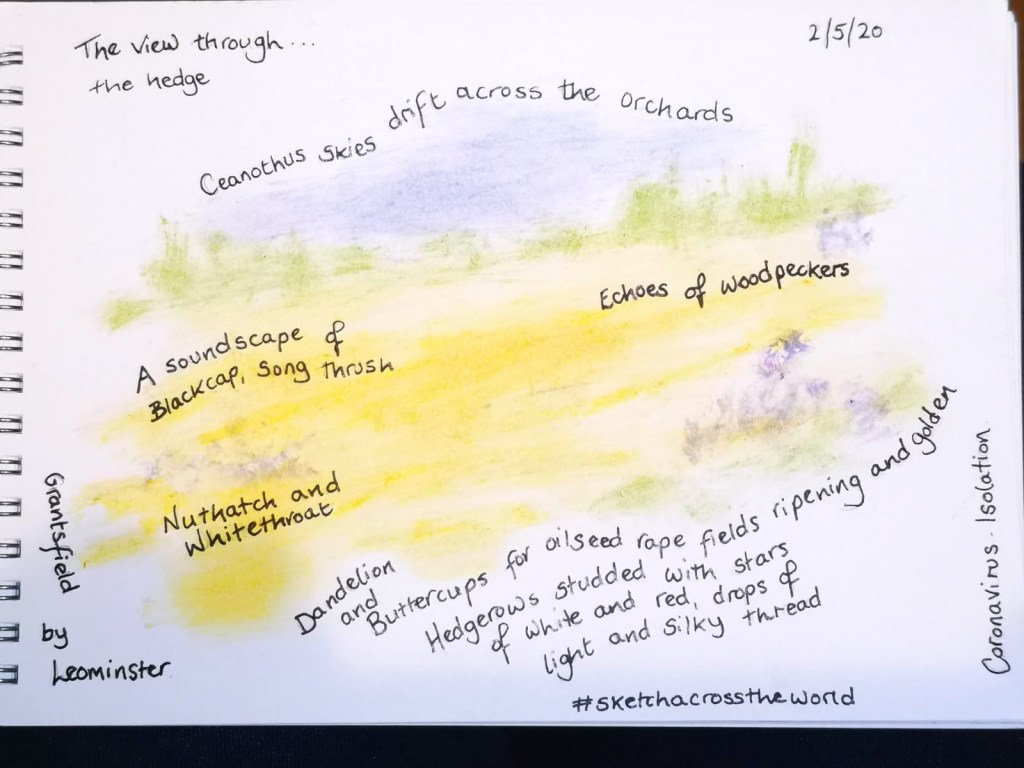 The view through...
the hedge
2/5/20
Ceanothus skies drift across the orchards
Echoes of woodpeckers
A soundscape of
Blackcap, Song thrush
Nuthatch and
Whitethroat
Dandelion
and
Buttercups for oilseed rape fields ripening and golden
Hedgerows studded with stars
of white and red, drops of
light and silky thread
Grantsfield
by
Leominster.
Coronavirus. Isolation
#sketchacrosstheworld